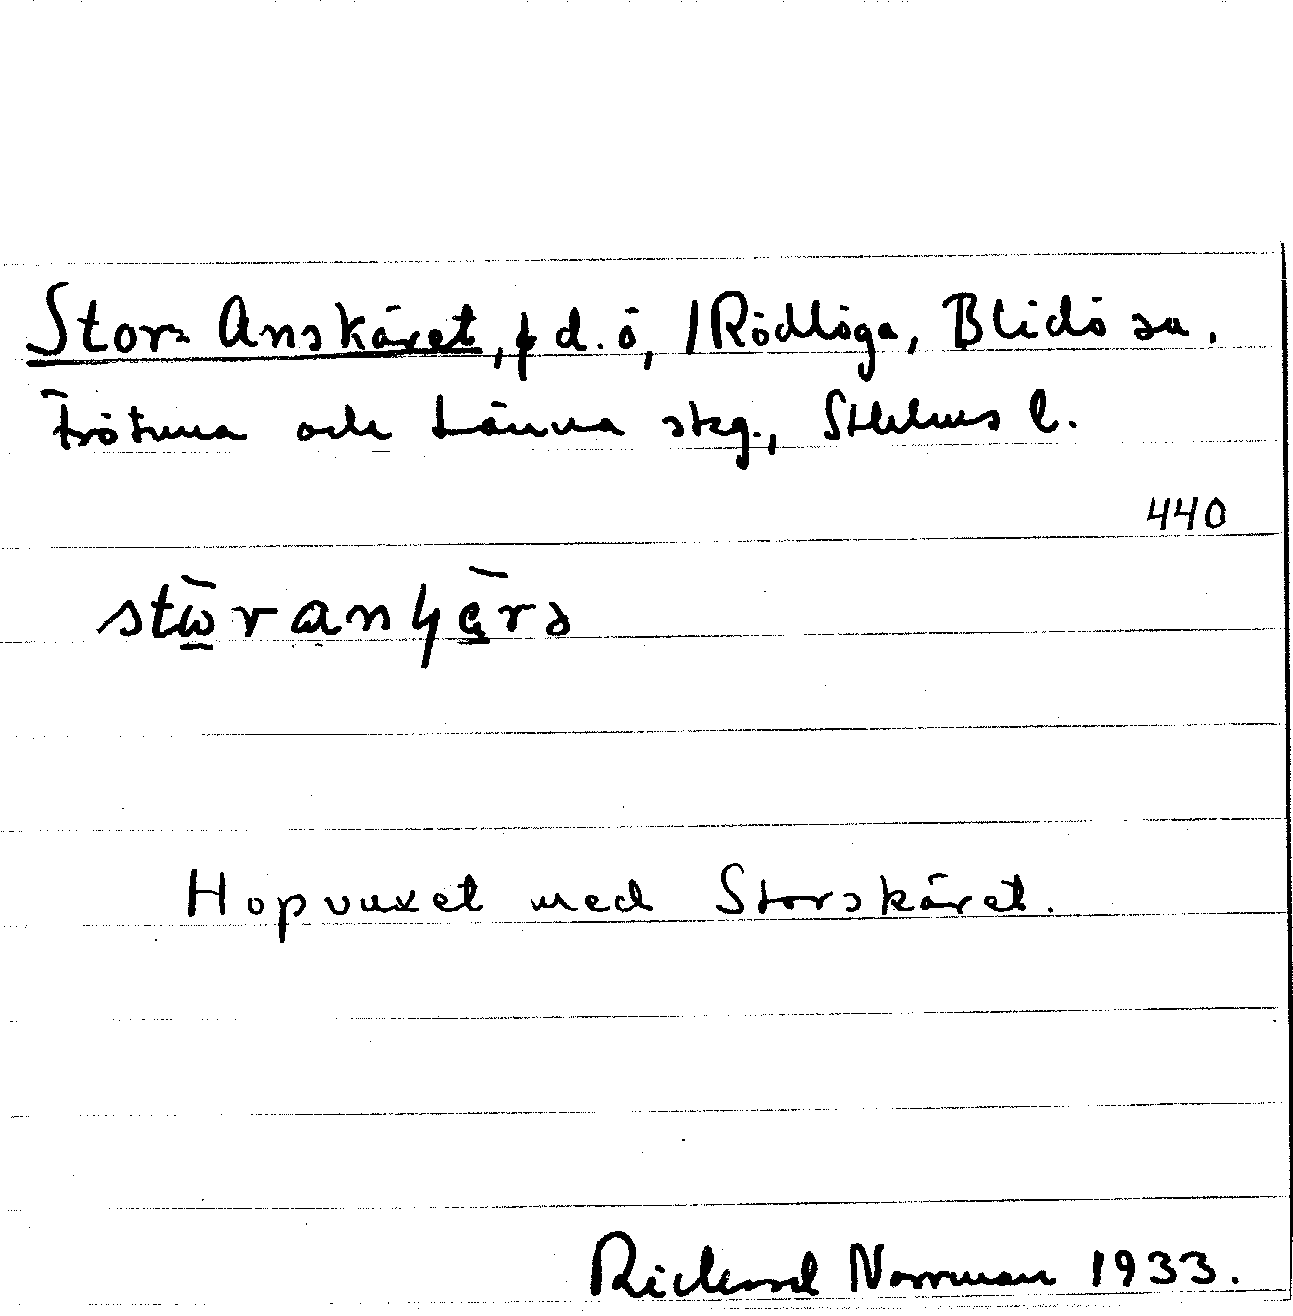 Stor- Anskäret, f d. ö, /Rödlöga, Blidö sn.
Frötuna och Länna skg., Sthlms l.
440
Hopvuxet med Storskäret.
Rickard Norrman 1933.